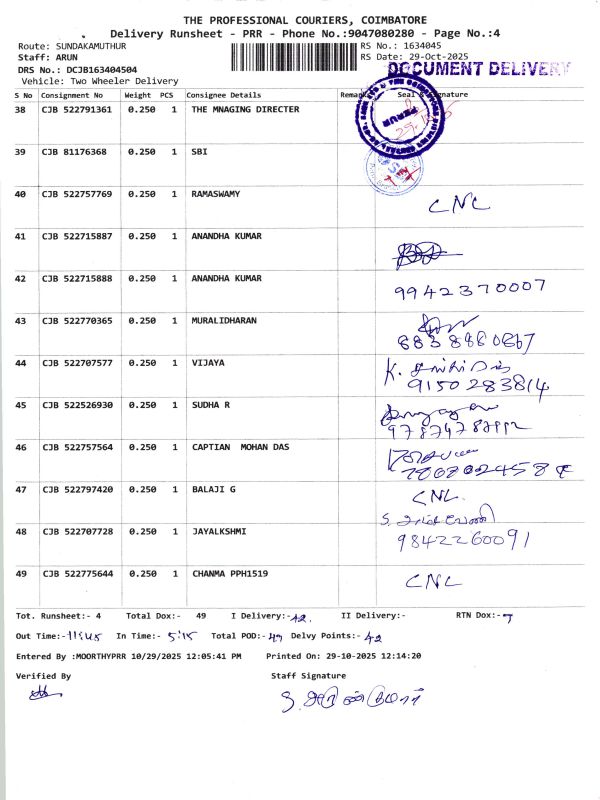 THE PROFESSIONAL COURIERS, COIMBATORE
Delivery Runsheet - PRR - Phone No.:9047080280 - Page No.:4
Route: SUNDAKAMUTHUR RS No.: 1634045
Staff: ARUN RS Date: 29-Oct-2025
DRS No.: DCJB163404504 DOCUMENT DELIVERY
Vehicle: Two Wheeler Delivery
S No Consignment No Weight PCS Consignee Details Remark Seal & Signature
38 CJB 522791361 0.250 1 THE MNAGING DIRECTER
PERUR
39 CJB 81176368 0.250 1 SBI
40 CJB 522757769 0.250 1 RAMASWAMY CNL
41 CJB 522715887 0.250 1 ANANDHA KUMAR
42 CJB 522715888 0.250 1 ANANDHA KUMAR 9942370007
43 CJB 522770365 0.250 1 MURALIDHARAN
44 CJB 522707577 0.250 1 VIJAYA K.
9150283814
45 CJB 522526930 0.250 1 SUDHA R
46 CJB 522757564 0.250 1 CAPTIAN MOHAN DAS
47 CJB 522797420 0.250 1 BALAJI G CNL.
48 CJB 522707728 0.250 1 JAYALKSHMI
9842260091
49 CJB 522775644 0.250 1 CHANMA PPH1519 CNL
Tot. Runsheet:- 4 Total Dox:- 49 I Delivery:- 42. II Delivery:- RTN Dox:- 7
Out Time:- 11:45 In Time:- 5:15 Total POD:- 49 Delvy Points:- 42
Entered By :MOORTHYPRR 10/29/2025 12:05:41 PM Printed On: 29-10-2025 12:14:20
Verified By Staff Signature